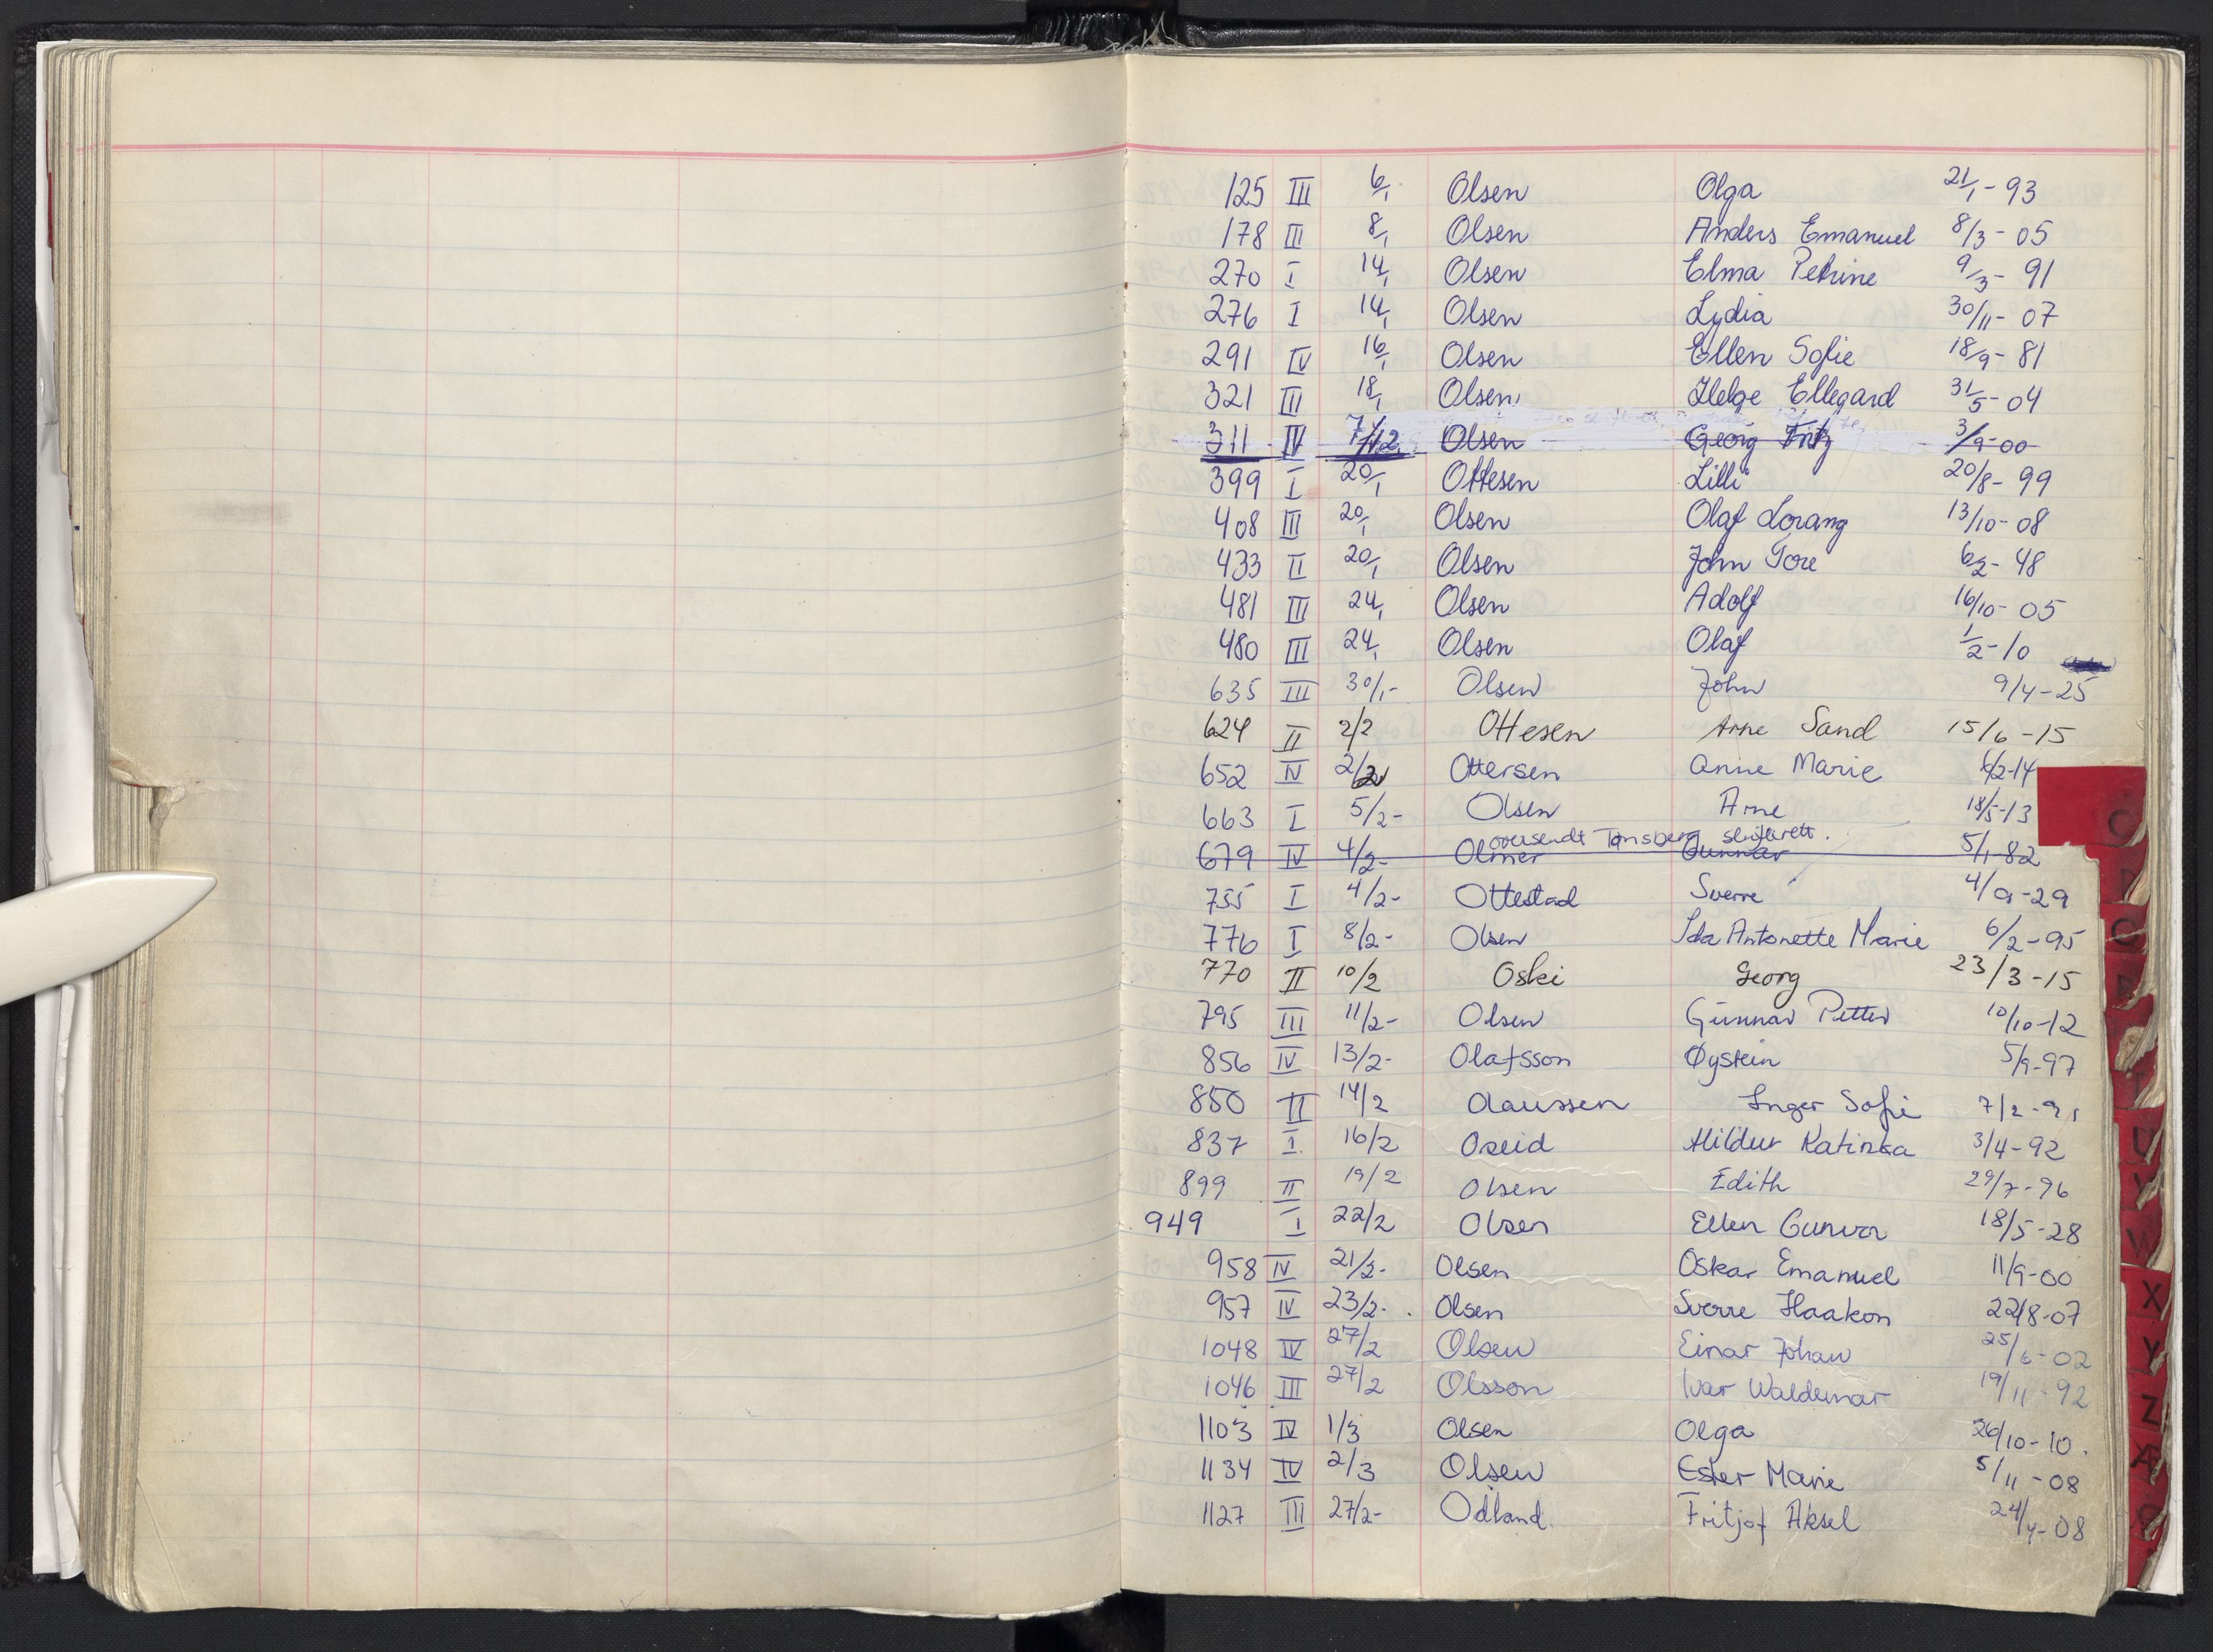 125 III 6/1 Olsen Olga 21/1-93
178 III 8/1 Olsen Anders Emanuel 8/3-05
270 I 14/1 Olsen Elma Petrine 9/3-91
276 I 14/1 Olsen Lydia 30/11-07
291 IV 16/1 Olsen Ellen Sofie 18/9-81
321 III 18/1 Olsen Helge Ellegard 31/5-04
311 IV 7/12 Olsen Georg Fritz 3/9-00
399 I 20/1 Ottesen Lilli 20/8-99
408 III 20/1 Olsen Olaf Lorang 13/10-08
433 II 20/1 Olsen John Tore 6/2-48
481 III 24/1 Olsen Adolf 16/10-05
480 III 24/1 Olsen Olaf 1/2-10
635 III 30/1- Olsen John 9/4-25
624 II 2/2 Ottesen Arne Sand 15/6-15
652 IV 2/2 Ottersen Anne Marie 6/2-14
663 I 5/2- Olsen Arne 18/5-13
oversendt Tønsberg skifterett.
679 IV 4/2- Olmer Gunnar 5/1-82
755 I 4/2- Ottestad Sverre 4/9-29
776 I 8/2- Olsen Ida Antonette Marie 6/2-95
770 II 10/2 Oski Georg 23/3-15
795 III 11/2- Olsen Gunnar Petter 10/10-12
856 IV 13/2- Olafsson Øystein 5/9-97
850 II 14/2 Olaussen Inger Sofie 7/2-91
837 I 16/2 Oseid Hildur Katinka 3/4-92
899 II 19/2 Olsen Edith 29/7-96
949 I 22/2 Olsen Ellen Gunvor 18/5-28
958 IV 21/2- Olsen Oskar Emanuel 11/9-00
957 IV 23/2- Olsen Sverre Haakon 22/8-07
1048 IV 27/2 Olsen Einar Johan 25/6-02
1046 III 27/2 Olsson Ivar Waldemar 19/11-92
1103 IV 1/3 Olsen Olga 26/10-10.
1134 IV 2/3 Olsen Ester Marie 5/11-08
1127 III 27/2- Odland Fritjof Aksel 24/4-08
O
P
Q
R
U
V
W
X
Y
Z
Æ
Ø